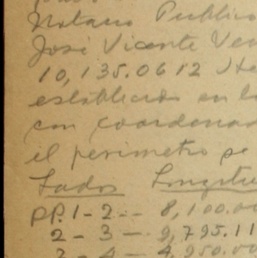 Notario Publico
José Vicente Ven
10,135.0612 He
establecido en lo
con coordenad
el perimetro se
Lados Longitu
PP. 1 - 2 -- 8,100.00
2 - 3 -- 9,795.11
3 - 4 - 4,950.00